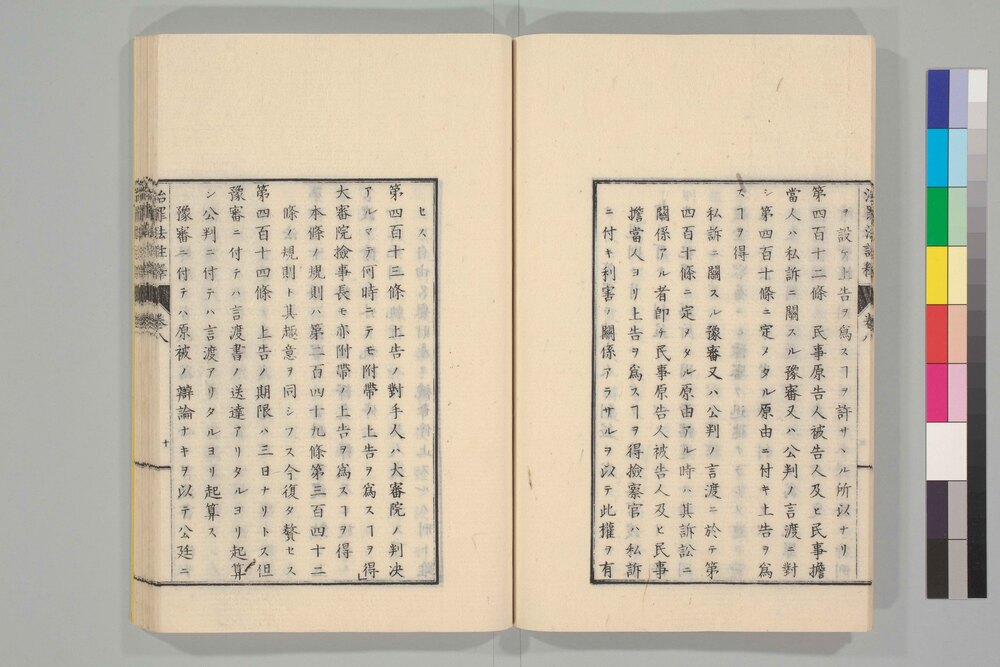 ヲ設ケ上告ヲ爲スヿヲ許サヽル所以ナリ
第四百十二條 民事原告人被告人及ヒ民事擔
當人ハ私訴ニ關スル豫審又ハ公判ノ言渡ニ對
シ第四百十條ニ定メタル原由ニ付キ上告ヲ爲
スヿヲ得
私訴ニ關スル豫審又ハ公判ノ言渡ニ於テ第
四百十條ニ定メタル原由アル時ハ其訴訟ニ
關係アル者卽チ民事原告人被告人及ヒ民事
擔當人ヨリ上告ヲ爲スヿヲ得撿察官ハ私訴
ニ付キ利害ノ關係アラサルヲ以テ此權ヲ有
セス
第四百十三條 上告ノ對手人ハ大審院ノ判决
アルマテ何時ニテモ附帶ノ上告ヲ爲スヿヲ得
大審院撿事長モ亦附帶ノ上告ヲ爲スヿヲ得
本條ノ規則ハ第二百四十九條第三百四十二
條ノ規則ト其趣意ヲ同シフス今復タ贅セス
第四百十四條 上告ノ期限ハ三日ナリトス但
豫審ニ付テハ言渡書ノ送達アリタルヨリ起算
シ公判ニ付テハ言渡アリタルヨリ起算ス
豫審ニ付テハ原被ノ辯論ナキヲ以テ公廷ニ
治罪法註釋 卷八
十